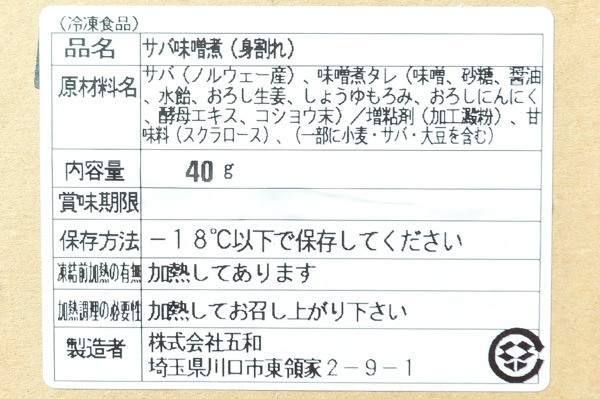 （冷凍食品）
品名 サバ味噌煮（身割れ）
原材料名 サバ（ノルウェー産）、味噌煮タレ（味噌、砂糖、醤油
、水飴、おろし生姜、しょうゆもろみ、おろしにんにく
、酵母エキス、コショウ末）／増粘剤（加工澱粉）、甘
味料（スクラロース）、（一部に小麦・サバ・大豆を含む）
内容量 40ｇ
賞味期限
保存方法 －１８℃以下で保存してください
凍結前加熱の有無 加熱してあります
加熱調理の必要性 加熱してお召し上がり下さい
製造者 株式会社五和
埼玉県川口市東領家２－９－１